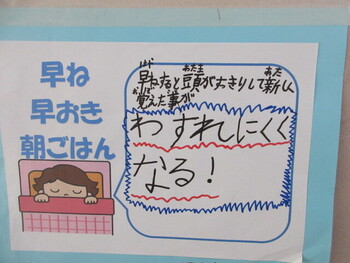 早ね
早おき
朝ごはん
早ねすると頭がすっきりして新しく
覚えた事が
わすれにくく
なる!